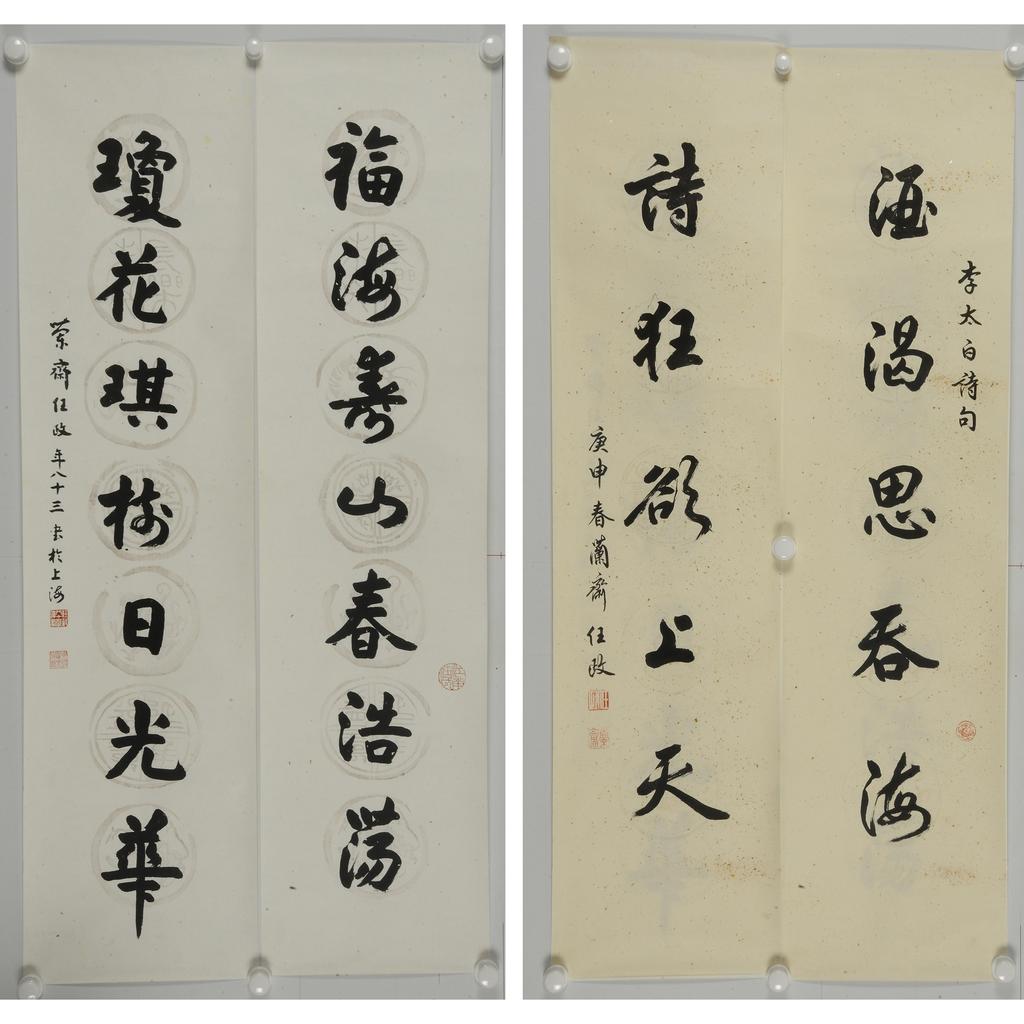 福海壽山春浩蕩
瓊花琪樹日光華
蘭齋任政年八十三書於上海
李太白詩句
酒渴思吞海
詩狂欲上天
庚申春蘭齋任政